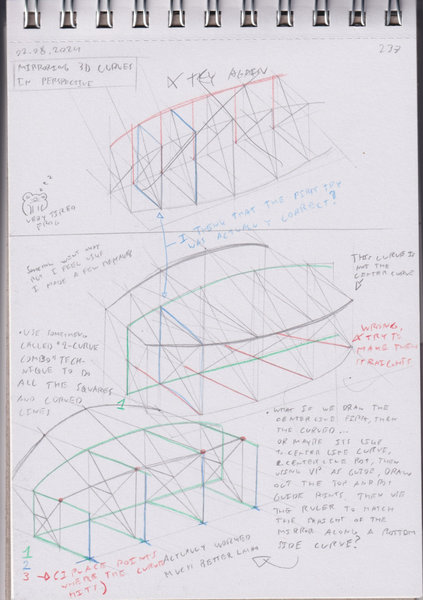 22.08.2024
237
MIRRORING 3D CURVES
IN PERSPECTIVE
TRY AGAIN
z z z
VERY TIRED
FROG
I THINK THAT THE FIRST TRY
WAS ACTUALLY CORRECT?
BUT I FEEL LIKE
I MADE A FEW MISTAKES
THIS CURVE IS
NOT THE
CENTER CURVE
WRONG,
TRY TO
MAKE THEM
STRAIGHTS
• USE SOMETHING
CALLED "2-CURVE
COMBO" TECH-
NIQUE TO DO
ALL THE SQUARES
AND CURVED
LINES
1
• WHAT IF WE DRAW THE
CENTER LINE FIRST, THEN
THE CURVED...
OR MAYBE ITS LIKE
1. CENTER LINE CURVE,
2. CENTER LINE BOT, THEN
USING VP AS GUIDE, DRAW
OUT THE TOP AND BOT
GUIDE POINTS, THEN USE
THE RULER TO MATCH
THE
OF THE
MIRROR ALONG A BOTTOM
SIDE CURVE?
1
2
3 → (I PLACE POINTS
WHERE THE CURVE
HITS!)
ACTUALLY WORKED
MUCH BETTER